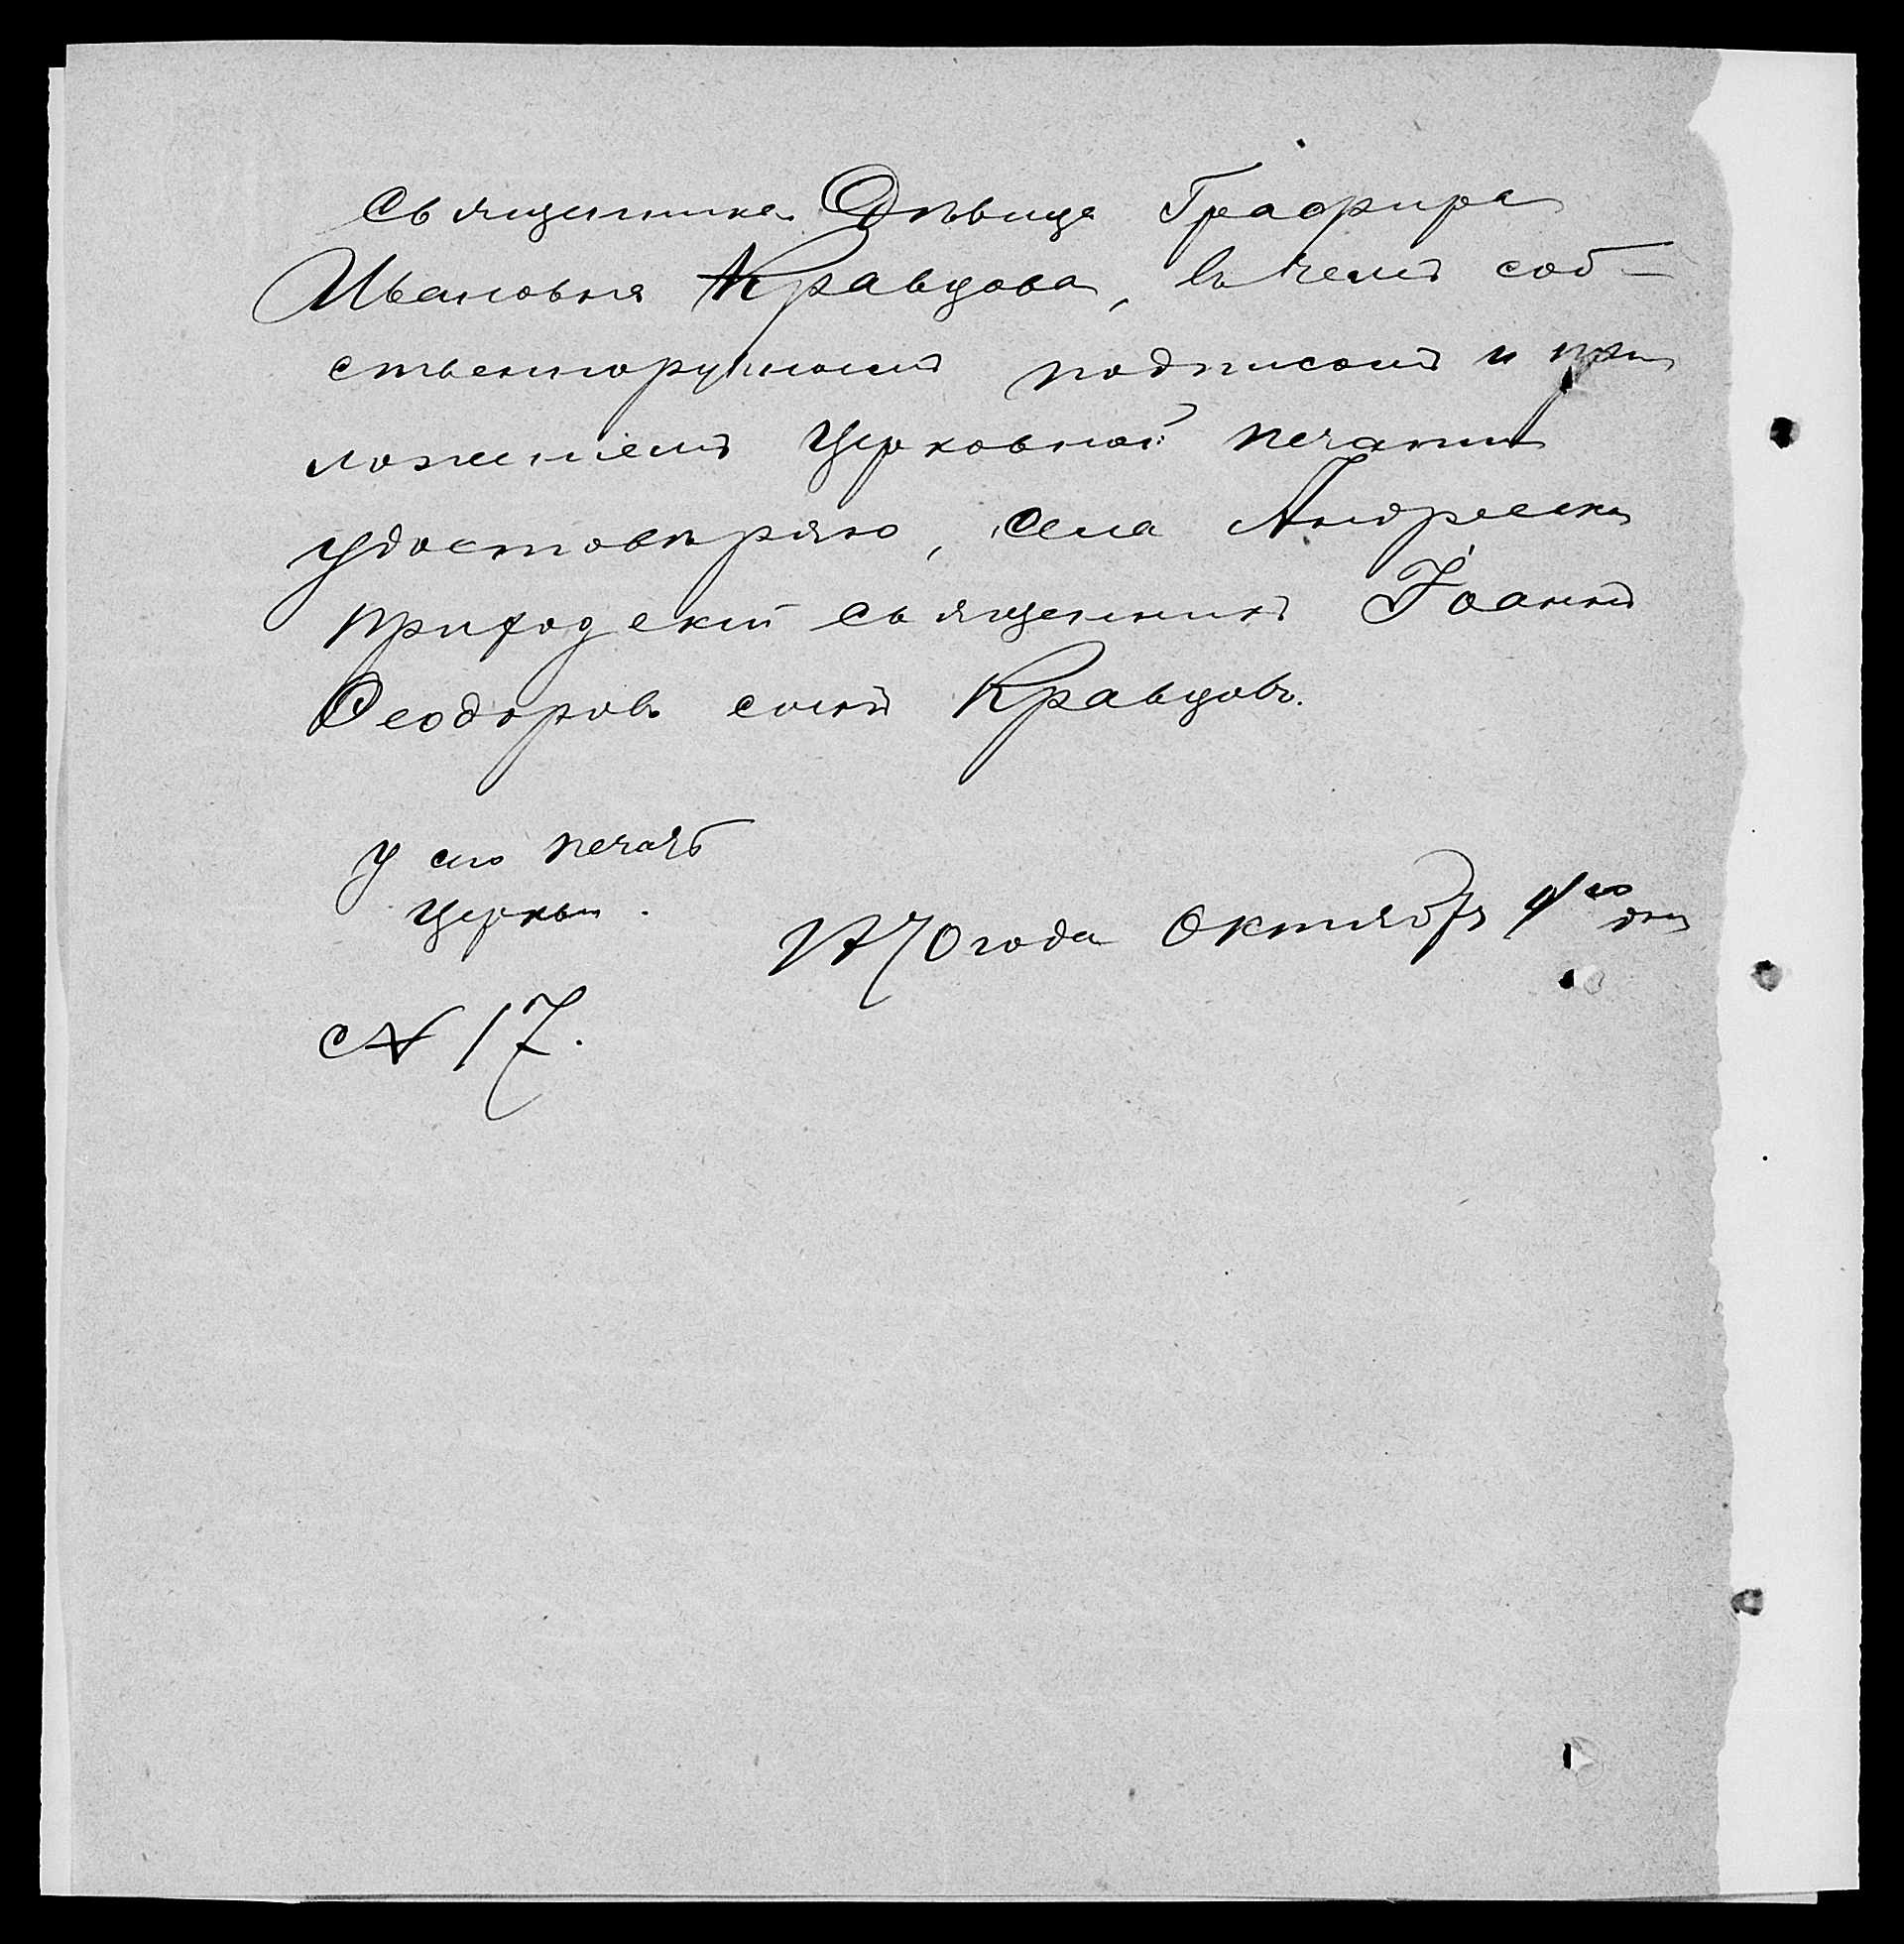 Священника Дѣвица Графира
Ивановна Кравцова, въ чемъ соб-
ственноручнымъ подписомъ и при
ложеніемъ Церковной печати
удостовѣряю, Села Андреевки
приходскій священникъ Іоаннъ
Феодоровъ сынъ Кравцовъ.
У сго печать
Церкви.
1870 года Октября 4го дня
№ 17.